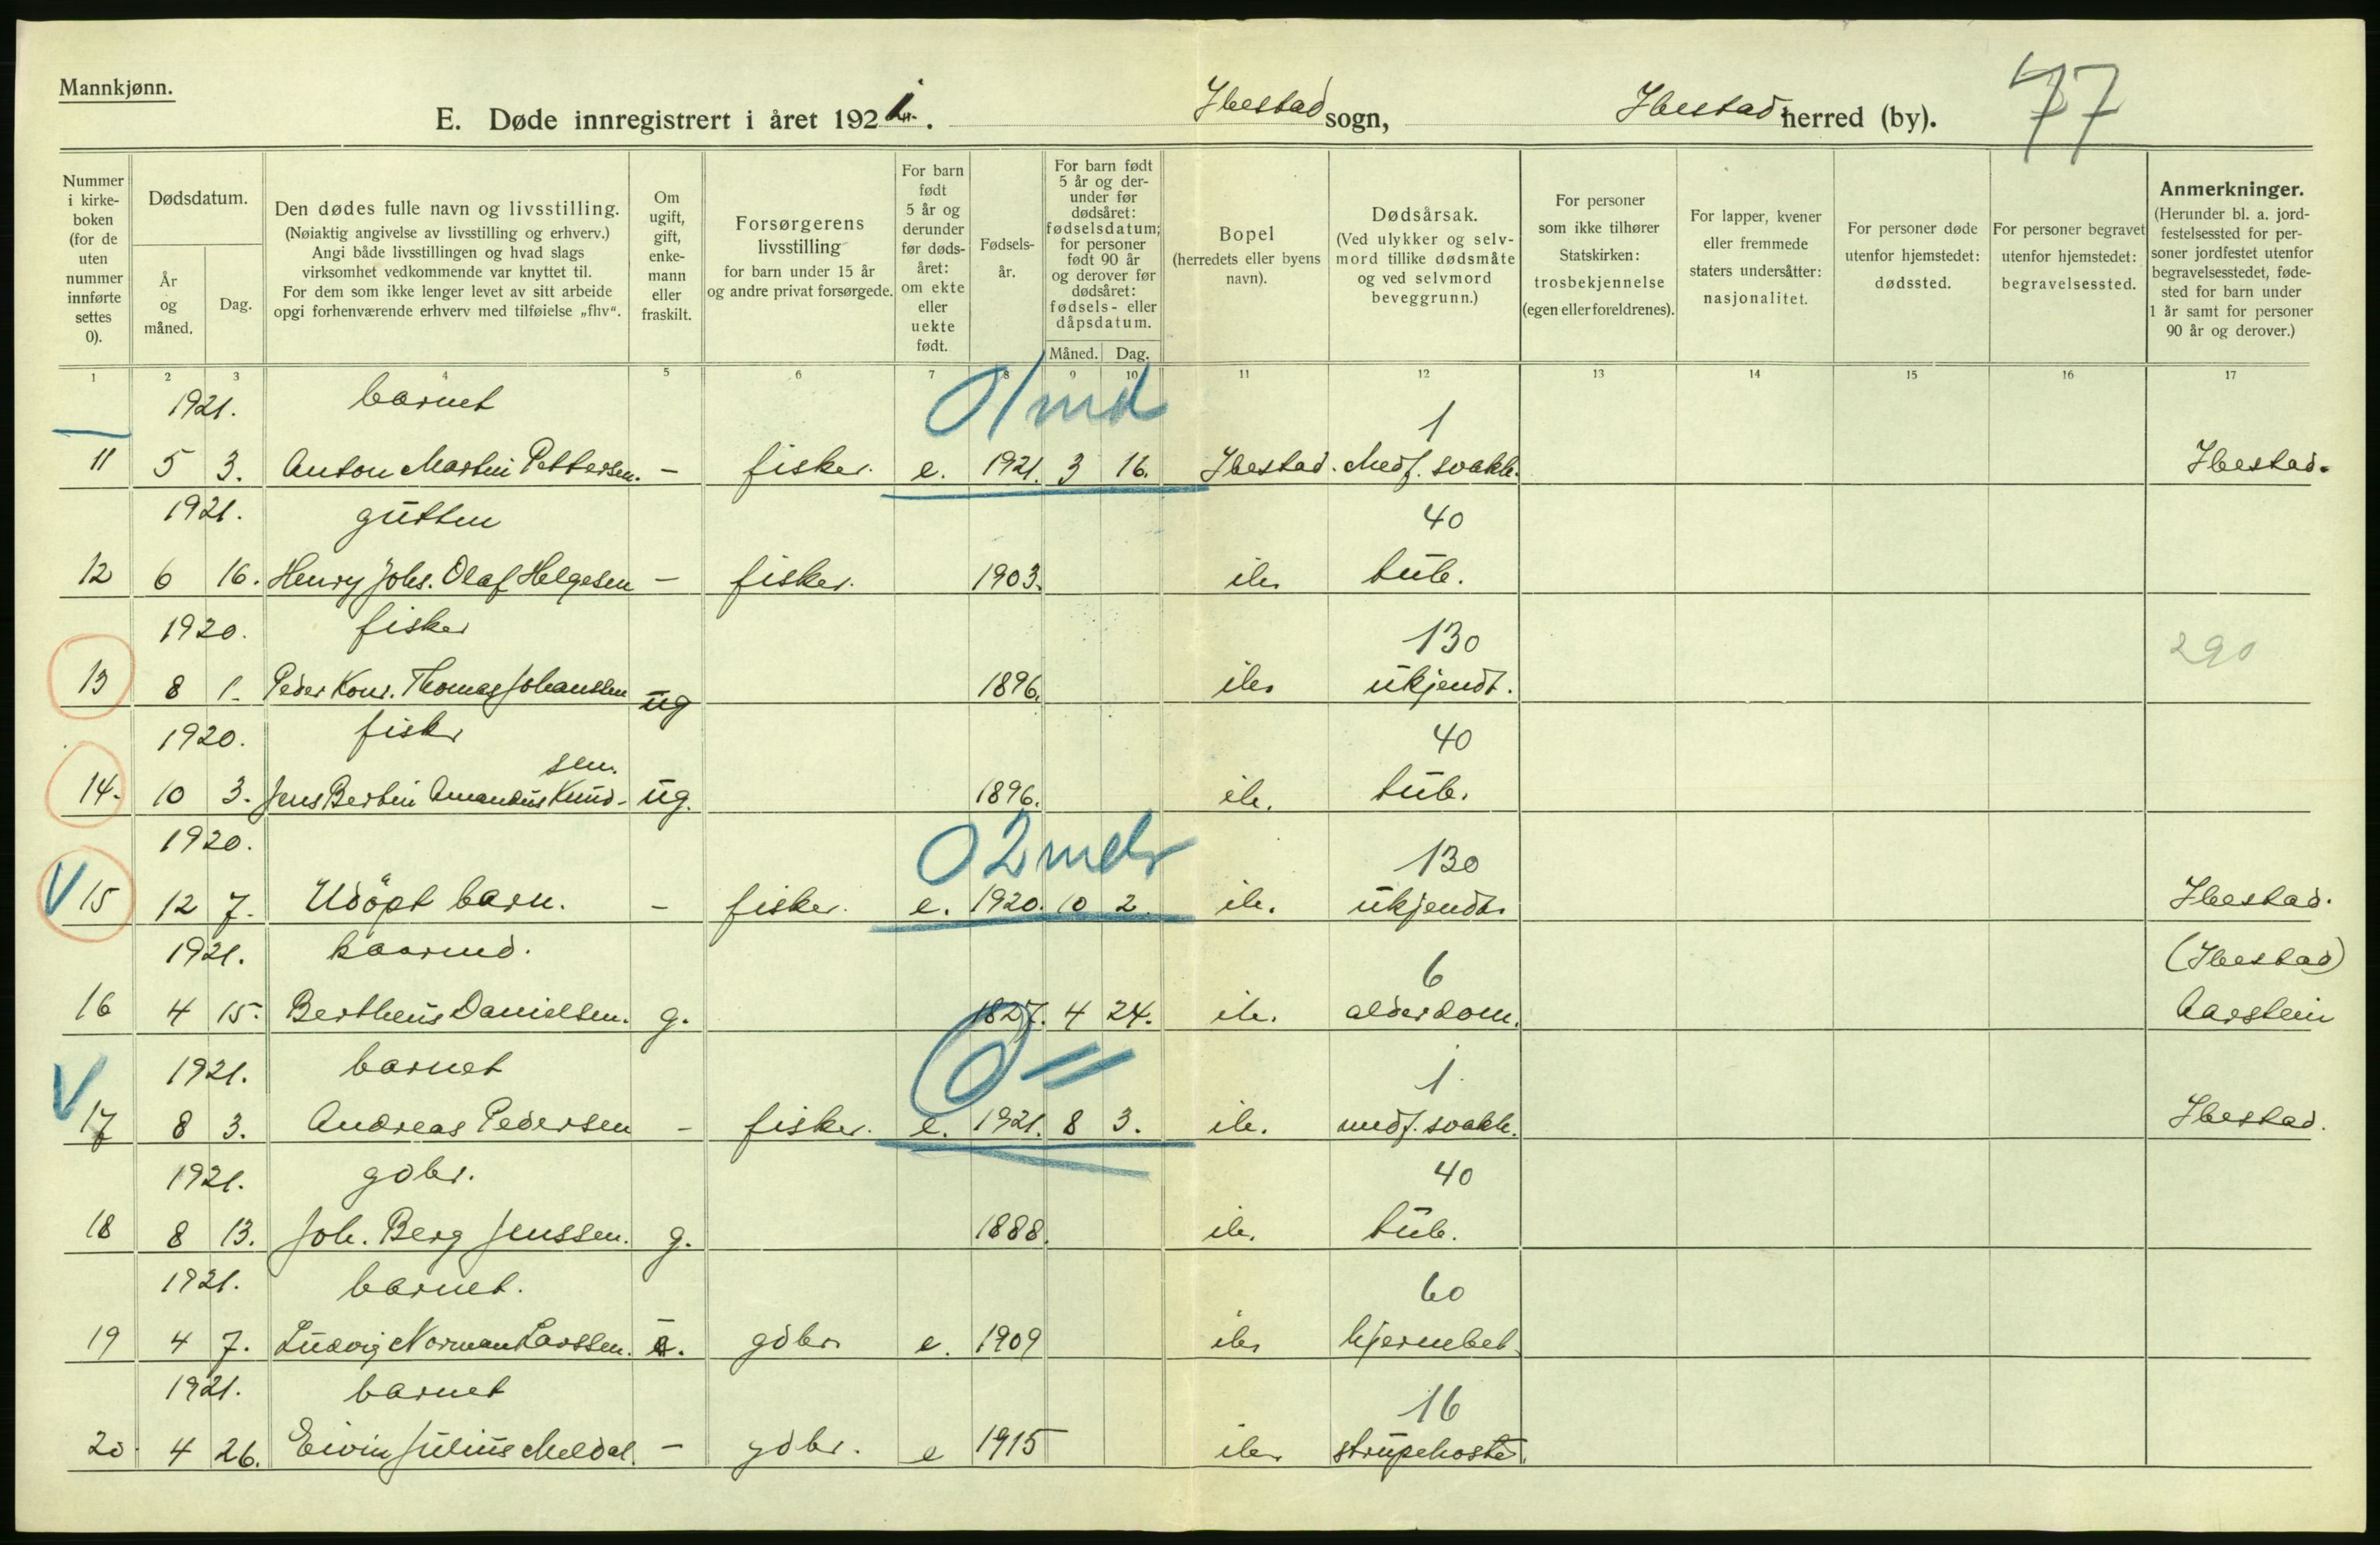 Mannkjønn.
E. Døde innregistrert i året 1921. Ibestad sogn, Ibestad herred (by). 77
Nummer i kirke-boken (for de uten nummer innførte settes 0).
Dødsdatum.
År og måned.
Dag.
Den dødes fulle navn og livsstilling.
(Nøiaktig angivelse av livsstilling og erhverv.)
Angi både livsstillingen og hvad slags
virksomhet vedkommende var knyttet til.
For dem som ikke lenger levet av sitt arbeide
opgi forhenværende erhverv med tilføielse „fhv“.
Om ugift, gift, enke-mann eller fraskilt.
Forsørgerens livsstilling
for barn under 15 år
og andre privat forsørgede.
For barn født 5 år og derunder før døds-året: om ekte eller uekte født.
Fødsels-år.
For barn født 5 år og der-under før dødsåret: fødselsdatum; for personer født 90 år og derover før dødsåret: fødsels- eller dåpsdatum.
Måned. Dag.
Bopel
(herredets eller byens navn).
Dødsårsak.
(Ved ulykker og selv-mord tillike dødsmåte og ved selvmord beveggrunn.)
For personer som ikke tilhører Statskirken: trosbekjennelse (egen eller foreldrenes).
For lapper, kvener eller fremmede staters undersåtter: nasjonalitet.
For personer døde utenfor hjemstedet: dødssted.
For personer begravet utenfor hjemstedet: begravelsessted.
Anmerkninger.
(Herunder bl. a. jord-festelsessted for per-soner jordfestet utenfor begravelsesstedet, føde-sted for barn under 1 år samt for personer 90 år og derover.)
1 2 3 4 5 6 7 8 9 10 11 12 13 14 15 16 17
1921. barnet 0/md 1
11 5 3. Anton Martin Pettersen. - fisker. e. 1921. 3 16. Ibestad. Medf. svakh. Ibestad.
1921. gutten 40
12 6 16. Henry Johs. Olaf Helgesen - fisker. 1903. ib. tub.
1920. fisker 130 290
13 8 1. Peder Konr. Thomas Johanssen ug 1896. ib. ukjendt.
1920. fisker 40
sen.
14. 10 3. Jens Bertin Amandus Knud- ug. 1896. ib. tub.
1920. 02 mdr 130
V 15 12 7. Udöpt barn. - fisker. e. 1920. 10 2. ib. ukjendt. Ibestad.
1921. kaarmd. 6 (Ibestad)
16 4 15. Bertheus Danielsen. g. 1827. 4 24. ib. alderdom. Aarstein
1921. barnet 0 = 1
V 17 8 3. Andreas Pedersen - fisker. e. 1921. 8 3. ib. medf. svakh. Ibestad.
1921. gdbr. 40
18 8 13. Joh. Berg Jenssen. g. 1888. ib. tub.
1921. barnet. 60
19 4 7. Ludvig Norman Larssen. gdbr. e. 1909 ib. hjernebet.
1921. barnet 16
20 4 26. Eivin Julius Meldal. - gdbr. e 1915 ib. strupehoste.